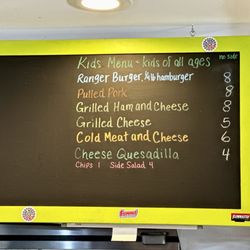 no side
Kids Menu - kids of all ages
Ranger Burger, 1/4 lb hamburger 8
Pulled Pork 8
Grilled Ham and Cheese 8
Grilled Cheese 5
Cold Meat and Cheese 6
Cheese Quesadilla 4
Chips 1 Side Salad 4